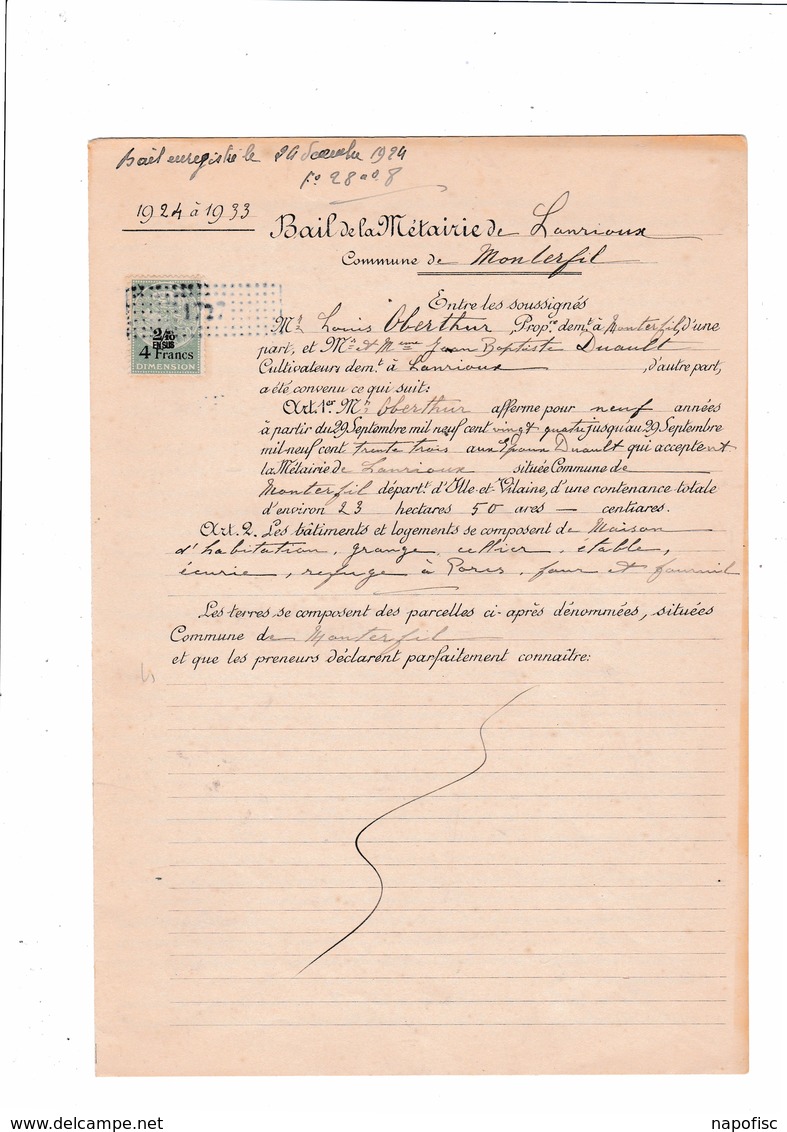 Bail enregistré le 24 Décembre 1924
Fo 28 no 8
1924 à 1933
Bail de la Métairie de Lanrioux
Commune de Monterfil
Entre les soussignés
Mr Louis Oberthur, Propre demt à Monterfil, d'une
part, et Mr et Mme Jean Baptiste Duault
Cultivateurs demt à Lanrioux, d'autre part,
a été convenu ce qui suit:
Art. 1er Mr Oberthur afferme pour neuf années
à partir du 29 Septembre mil neuf cent vingt quatre jusqu'au 29 Septembre
mil-neuf cent trente trois aux Epoux Duault qui acceptent
la Métairie de Lanrioux située Commune de
Monterfil départt d'Ille-et-Vilaine, d'une contenance totale
d'environ 23 hectares 50 ares — centiares.
Art. 2. Les bâtiments et logements se composent de Maison
d'habitation, grange, cellier, étable,
écurie, refuge à Porcs, four et fournil
Les terres se composent des parcelles ci-après dénommées, situées
Commune de Monterfil
et que les preneurs déclarent parfaitement connaître:
1727
2/10
EN SUS
4 Francs
DIMENSION
delcampe.net
napofisc